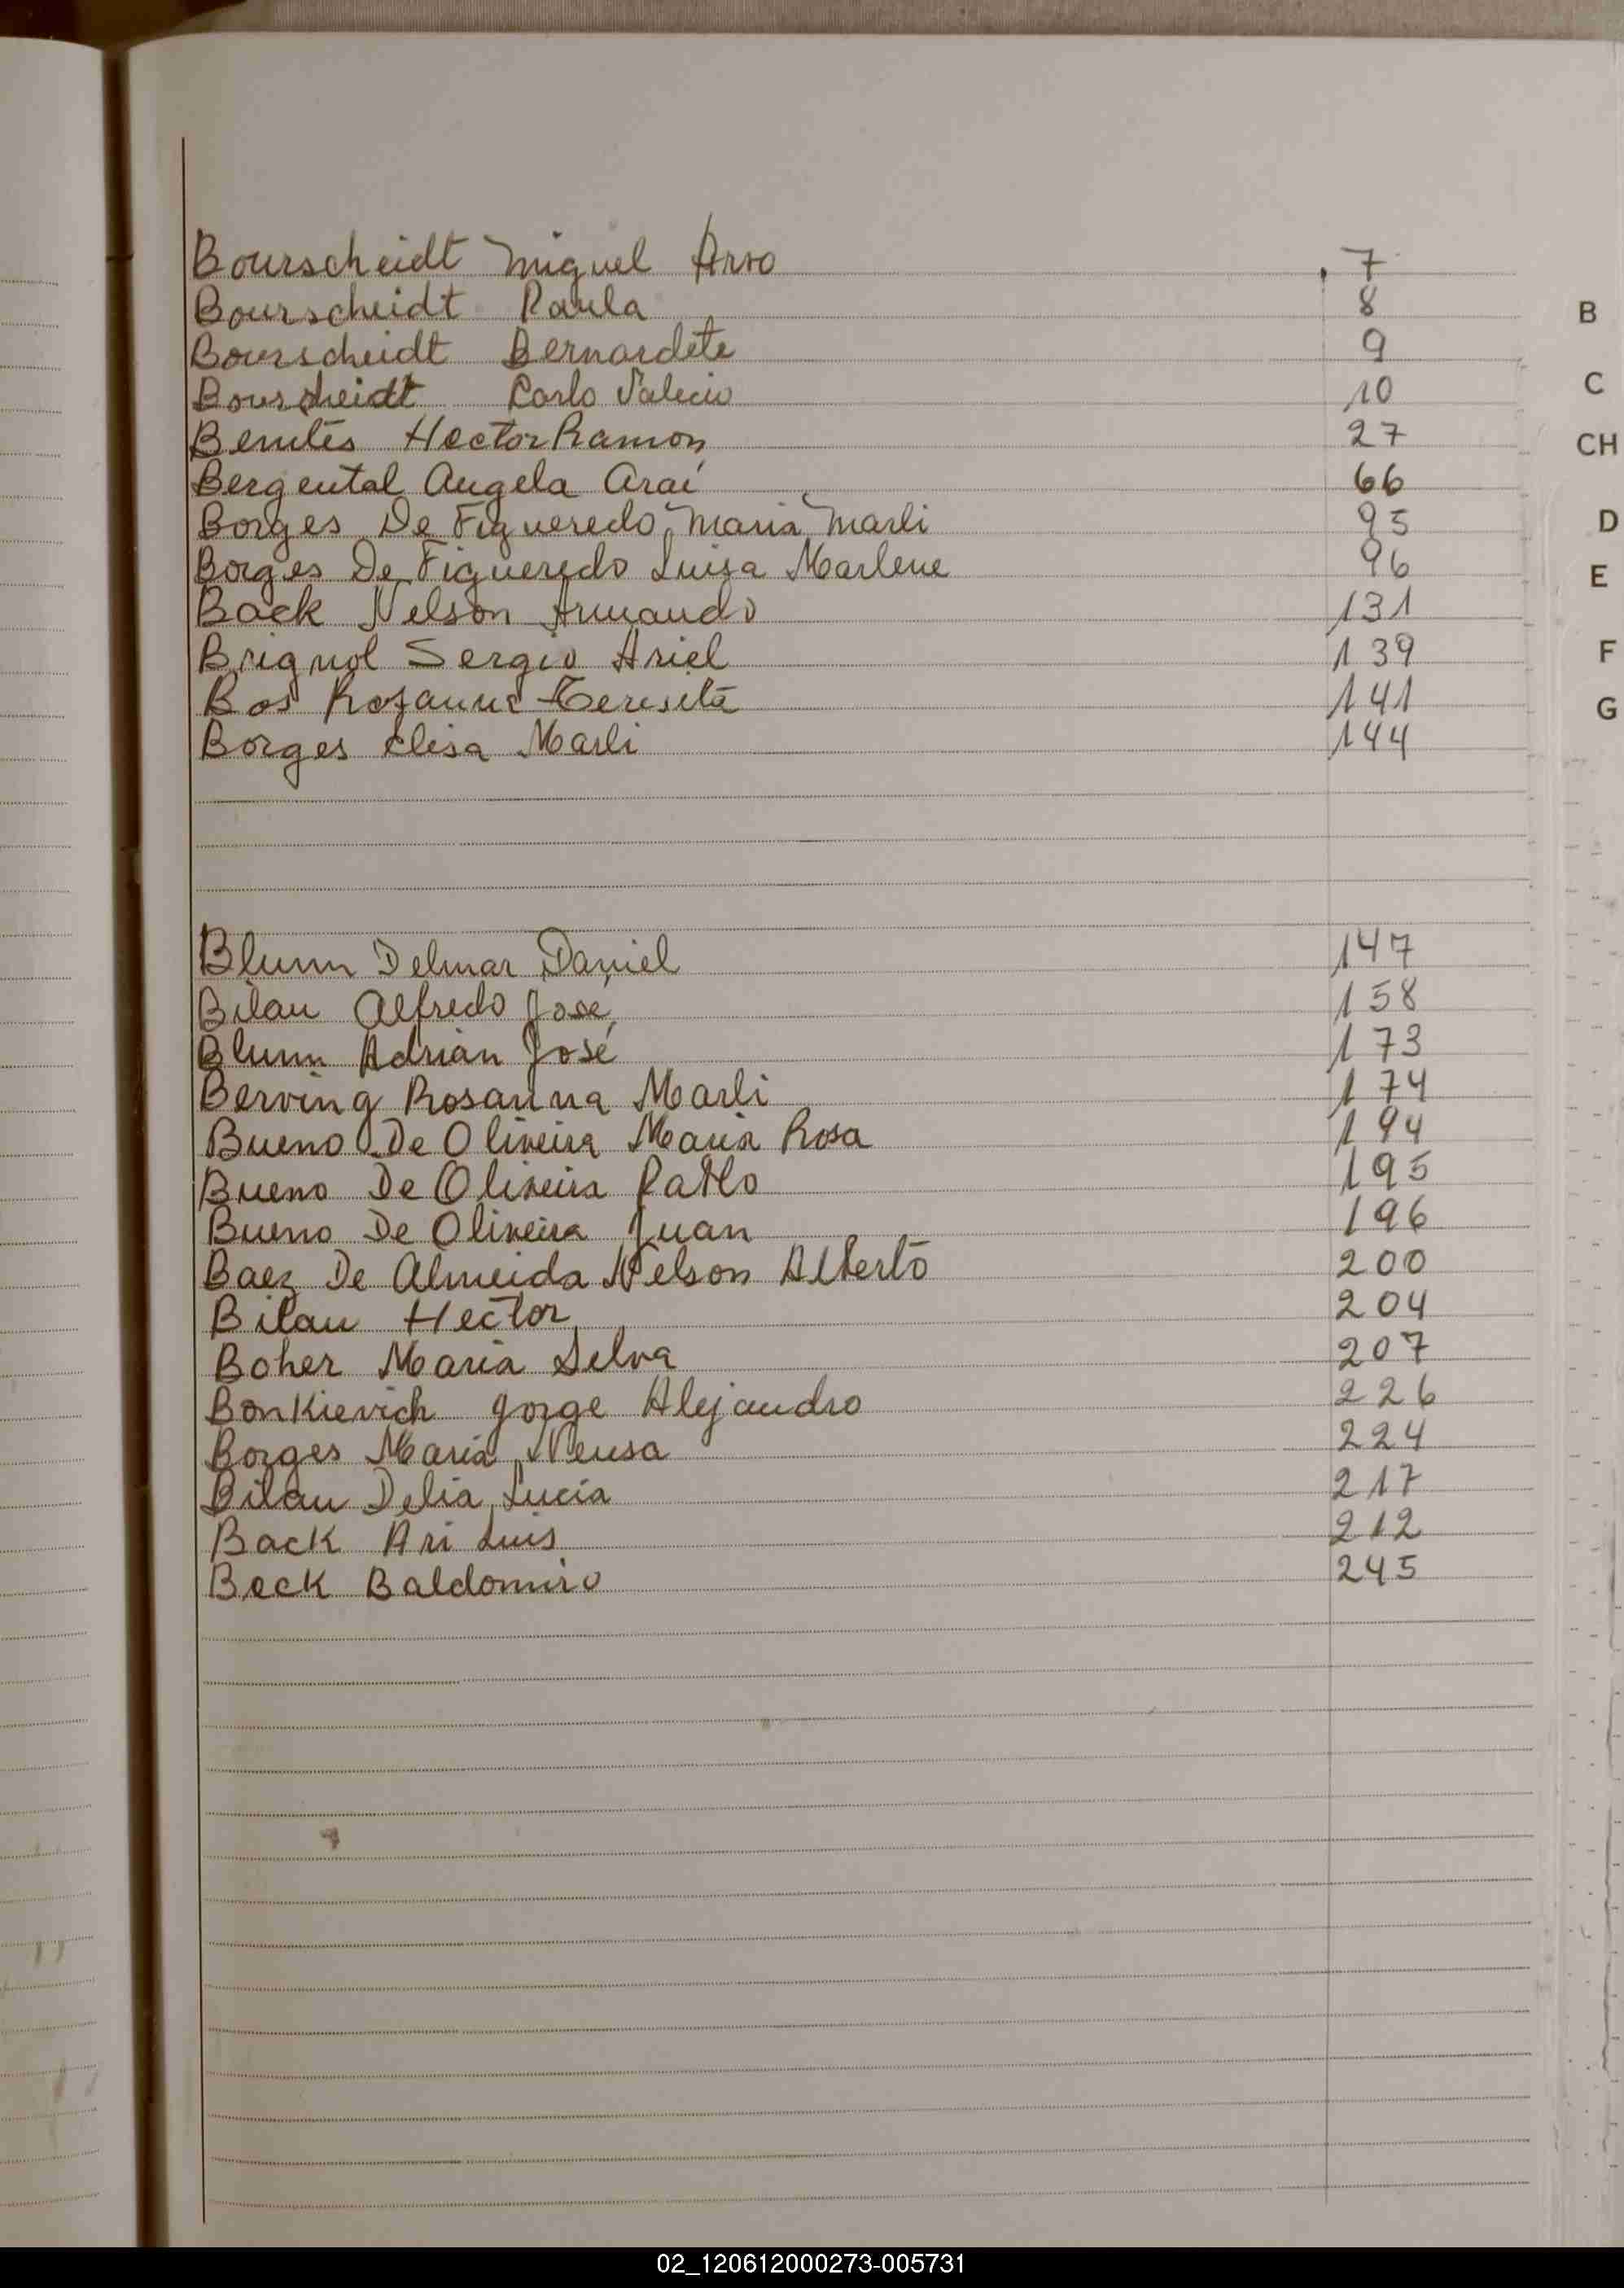 Bourscheidt Miguel Arno 7
Bourscheidt Paula 8
Bourscheidt Bernardete 9
Bourscheidt Carlo 10
Benites Hector Ramon 27
Bergental Angela Araí 66
Borges De Figueredo Maria Marli 95
Borges De Figueredo Luisa Marlene 96
Back Nelson Armando 131
Brignol Sergio Ariel 139
Bos Teresita 141
Borges Elisa Marli 144
Blum Delmar Daniel 147
Bilau Alfredo José 158
Blum Adrian José 173
Berving Rosanna Marli 174
Bueno De Oliveira Maria Rosa 194
Bueno De Oliveira Pablo 195
Bueno De Oliveira Juan 196
Baez De Almeida Nelson Alberto 200
Bilau Hector 204
Boher Maria Selva 207
Bonkievich Jorge Alejandro 226
Borges Maria Neusa 224
Bilau Delia Lucia 217
Back Ari Luis 212
Beck Baldomiro 245
B
C
CH
D
E
F
G
02_120612000273-005731